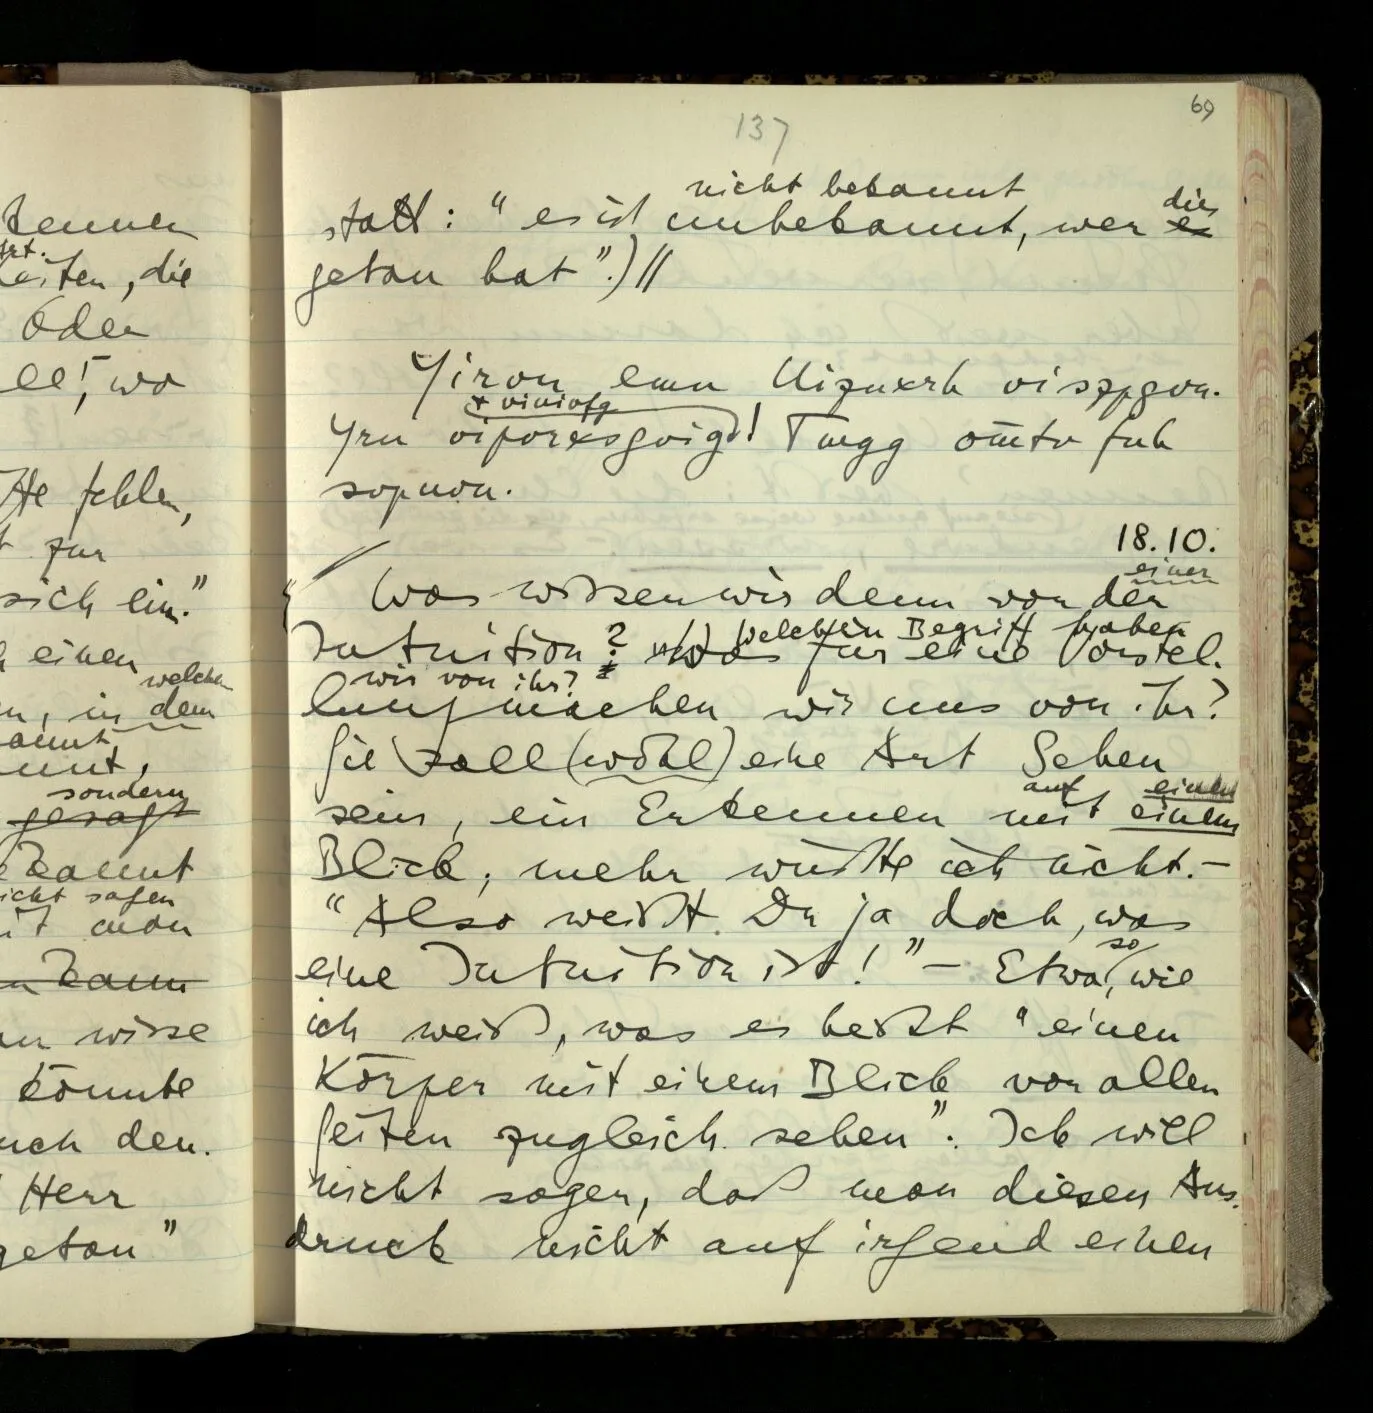 kennen
eiten, die
Oder
ell!, wo
fehlen,
zur
sich ein."
einen
welchen
in dem
sondern
gesagt
kannt
nicht sagen
man
kann
wisse
könnte
uch den.
Herr
getan"
69
137
nicht bekannt
statt: " es ist unbekannt, wer es
dies
getan hat".) //
Yiron emn
+ viniofg
Yrn
sopnon.
18.10.
einer
Was wissen wir denn von der
welchen Begriff haben
Intuition? Was für eine Vorstel-
wir von ihr?
lung machen wir uns von ihr?
Sie soll (wohl) eine Art Sehen
auf einen
sein, ein Erkennen mit einem
Blick; mehr wüßte ich nicht. –
"Also weißt Du ja doch, was
so
eine Intuition ist!" – Etwa, wie
ich weiß, was es heißt "einen
Körper mit einem Blick von allen
Seiten zugleich sehen". Ich will
nicht sagen, daß man diesen Aus-
druck nicht auf irgend einen